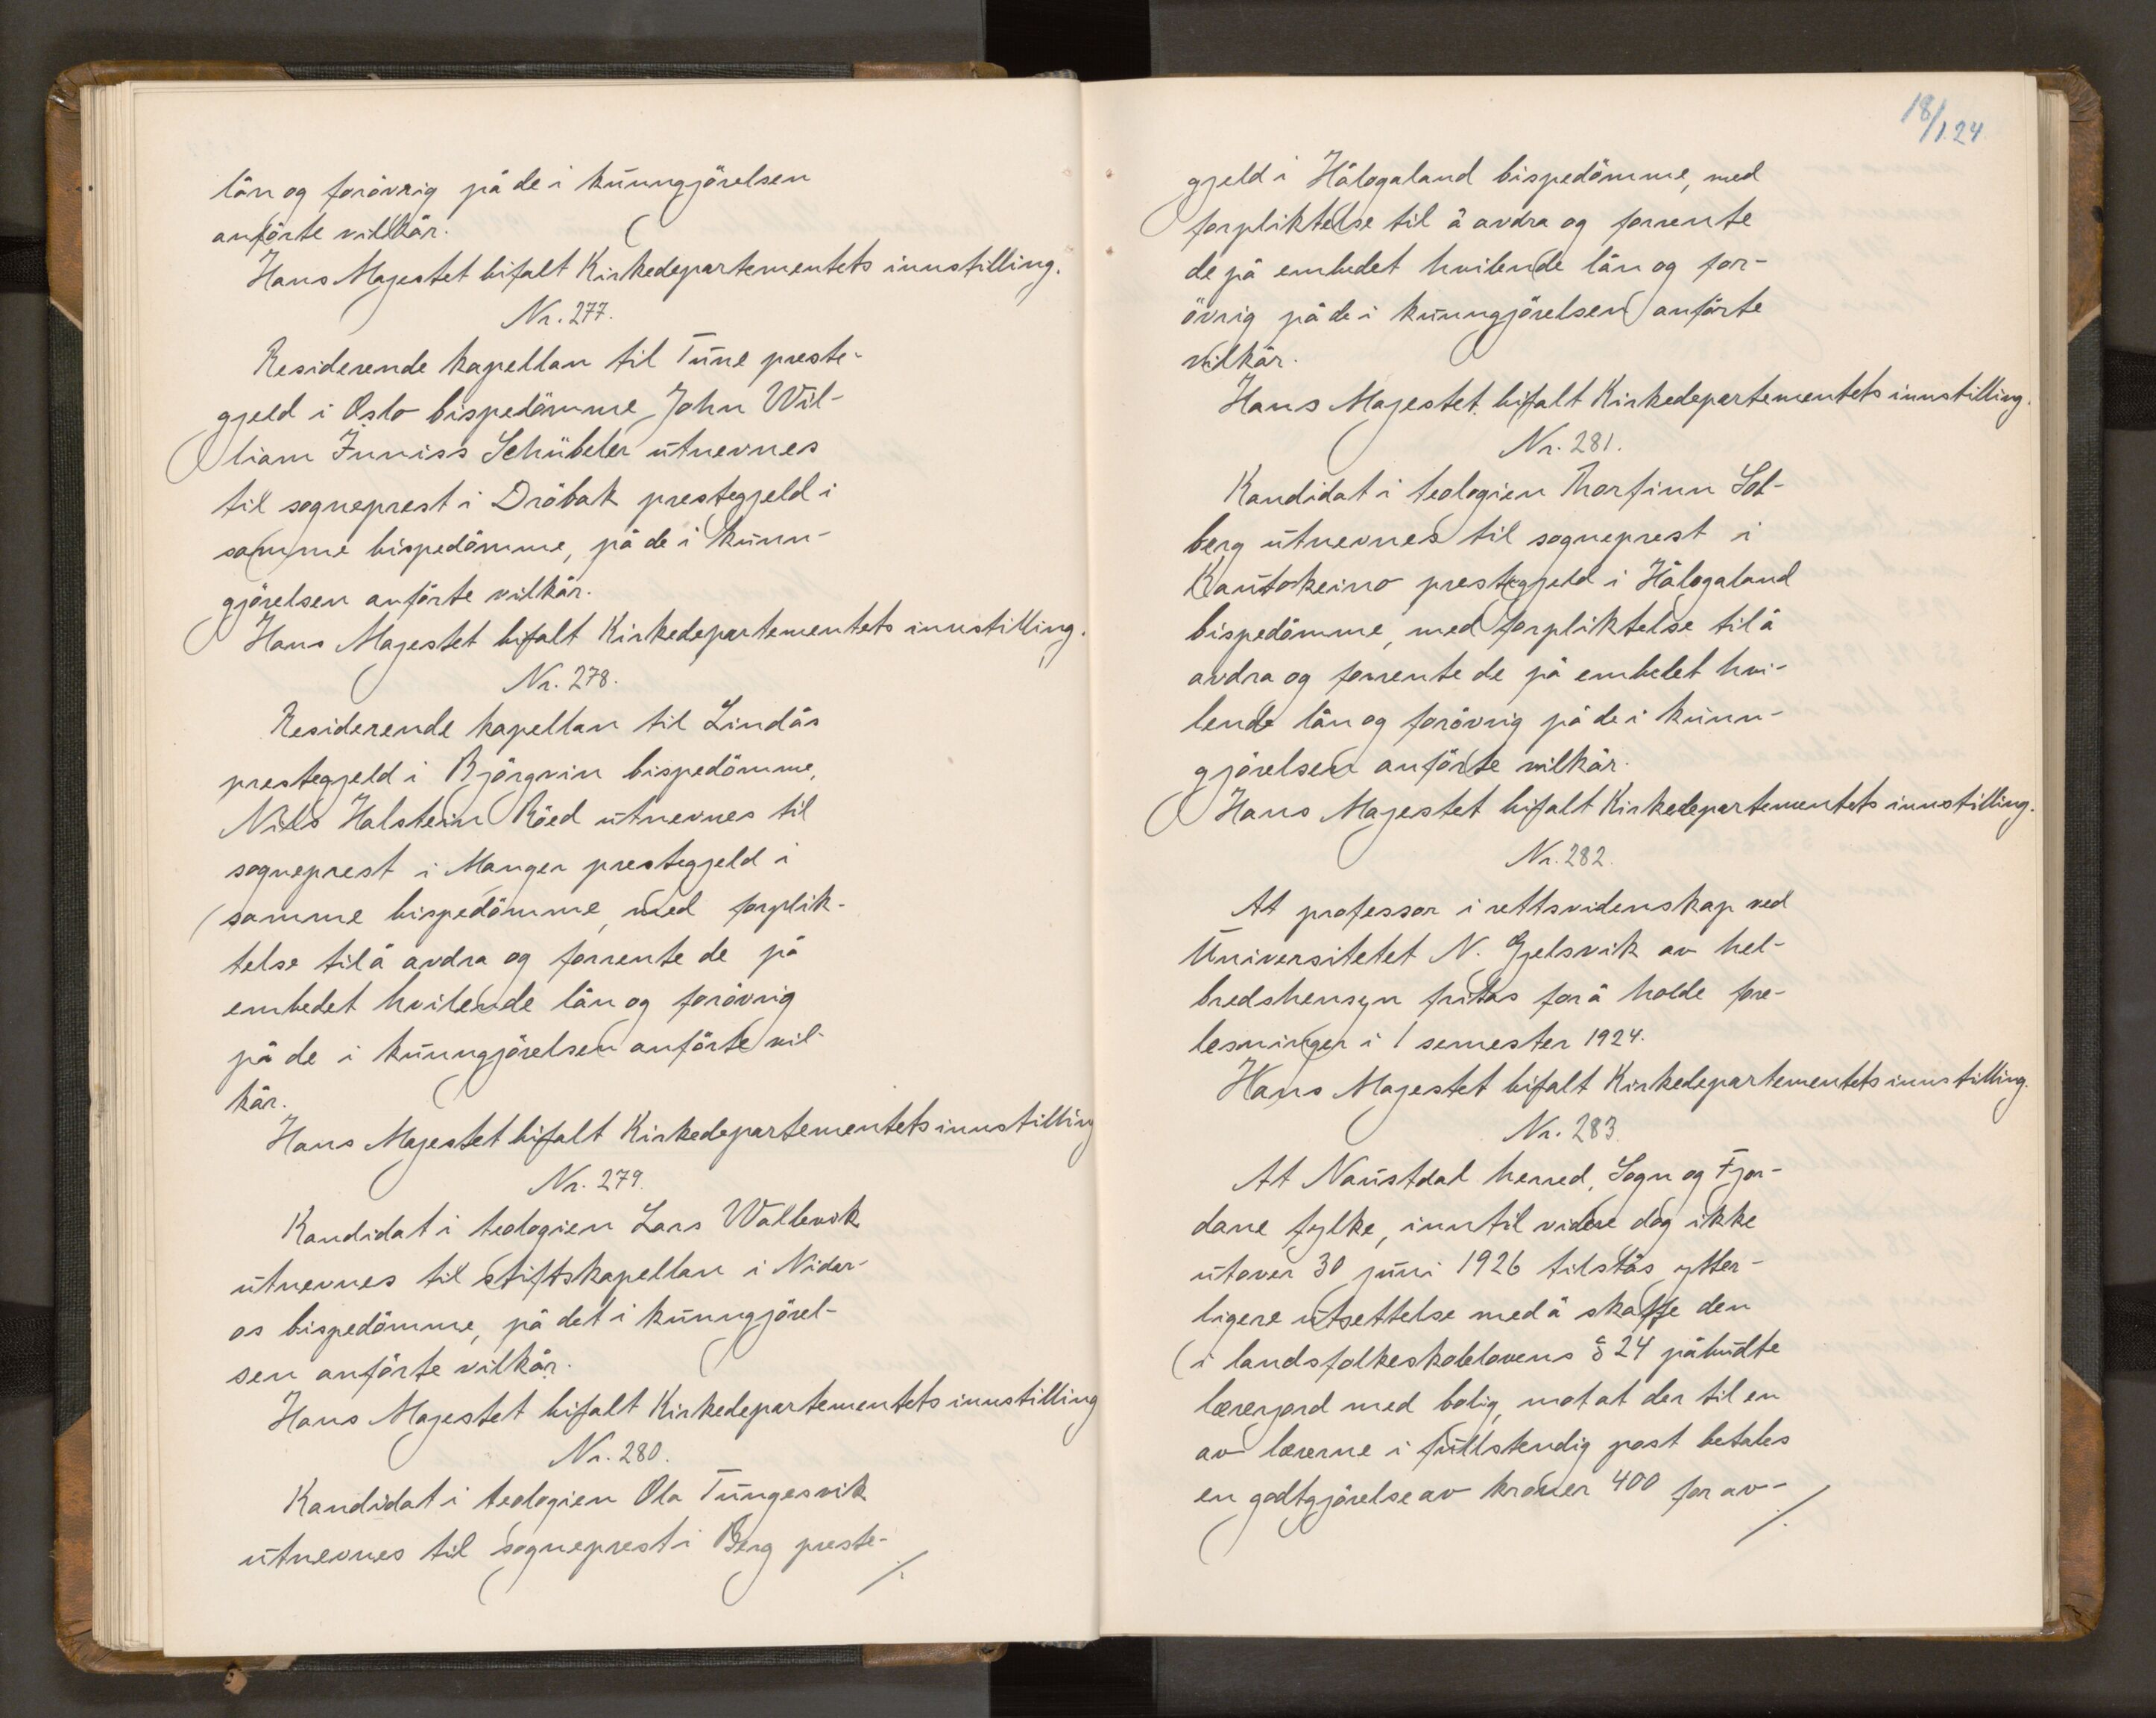 lån og forövrig på de i kunngjörelsen
anförte vilkår.
Hans Majestet bifalt Kirkedepartementets innstilling.
Nr. 277.
Residerende kapellan til Tune preste-
gjeld i Oslo bispedömme John Wil-
liam Inniss Schübeler utnevnes
til sogneprest i Dröbak prestegjeld i
samme bispedömme, på de i kunn-
gjörelsen anförte vilkår.
Hans Majestet bifalt Kirkedepartementets innstilling.
Nr. 278.
Residerende kapellan til Lindås
prestegjeld i Björgvin bispedömme,
Nils Halstein Röed utnevnes til
sogneprest i Manger prestegjeld i
samme bispedömme, med forplik-
telse til å avdra og forrente de på
embedet hvilende lån og forövrig
på de i kunngjörelsen anförte vil-
kår.
Hans Majestet bifalt Kirkedepartementets innstilling
Nr. 279.
Kandidat i teologien Lars Wallevik
utnevnes til stiftskapellan i Nidar-
os bispedömme, på det i kunngjörel-
sen anförte vilkår.
Hans Majestet bifalt Kirkedepartementets innstilling
Nr. 280.
Kandidat i teologien Ola Tungesvik
utnevnes til sogneprest i Berg preste-
./.
18/1.24
gjeld i Hålogaland bispedömme, med
forpliktelse til å avdra og forrente
de på embedet hvilende lån og for-
övrig på de i kunngjörelsen anförte
vilkår.
Hans Majestet bifalt Kirkedepartementets innstilling.
Nr. 281.
Kandidat i teologien Thorfinn Sol-
berg utnevnes til sogneprest i
Kautokeino prestegjeld i Hålogaland
bispedömme, med forpliktelse til å
avdra og forrente de på embedet hvi-
lende lån og forövrig på de i kunn-
gjörelsen anförte vilkår.
Hans Majestet bifalt Kirkedepartementets innstilling.
Nr. 282.
At professor i rettsvidenskap ved
Universitetet N. Gjelsvik av hel-
bredshensyn fritas for å holde fore-
lesninger i 1 semester 1924.
Hans Majestet bifalt Kirkedepartementets innstilling.
Nr. 283.
At Naustdal herred, Sogn og Fjor-
dane fylke, inntil videre dog ikke
utover 30 juni 1926 tilståes ytter-
ligere utsettelse med å skaffe den
i landsfolkeskolelovens § 24 påbudte
lærerjord med bolig, mot at der til en
av lærerne i fullstendig post betales
en godtgjörelse av kroner 400 for av-
./.